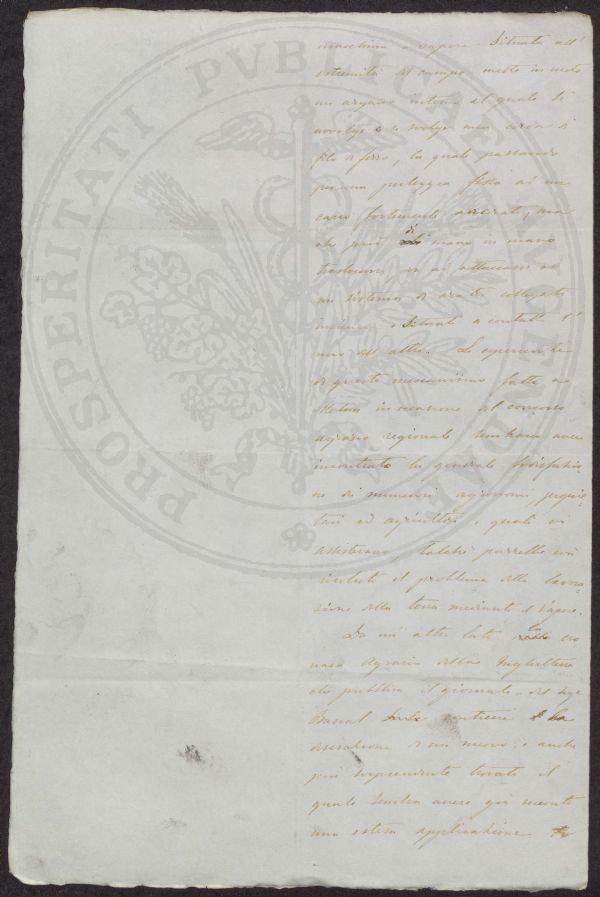 PROSPERITATI PVBLICAE AVGENDAE
macchina a vapore situata all'
estremità del campo mette in moto
un argano intorno al quale si
avvolge e si svolge una corda di
filo di ferro, la quale passando
per una puleggia fissa ad un
carro fortemente ancorato, ma
che può di mano in mano
traslocarsi, va ad attaccarsi ad
un sistema di aratri collegati
insieme e situati a contatto l'
uno dell' altro. Le esperienze
di questo meccanismo fatte a
in occasione del concorso
agrario regionale sembrano avere
incontrato la generale soddisfazio
ne di numerosi agronomi, proprie
tari ed agricoltori, i quali vi
assistevano, talché parrebbe così
risoluto il problema della lavora
zione della terra mediante il vapore.
Da un' altro lato la cro
naca Agraria della Inghilterra
che pubblica il giornale del Sig.
Barral contiene la
descrizione di un nuovo, e anche
più sorprendente trovato il
quale sembra avere già ricevuto
una estesa applicazione